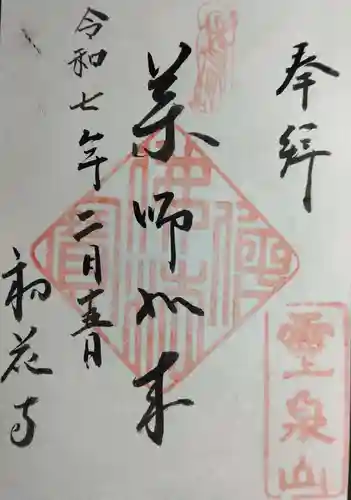 奉拝
霊泉山
薬師如来
令和七年二月十五日
初花寺